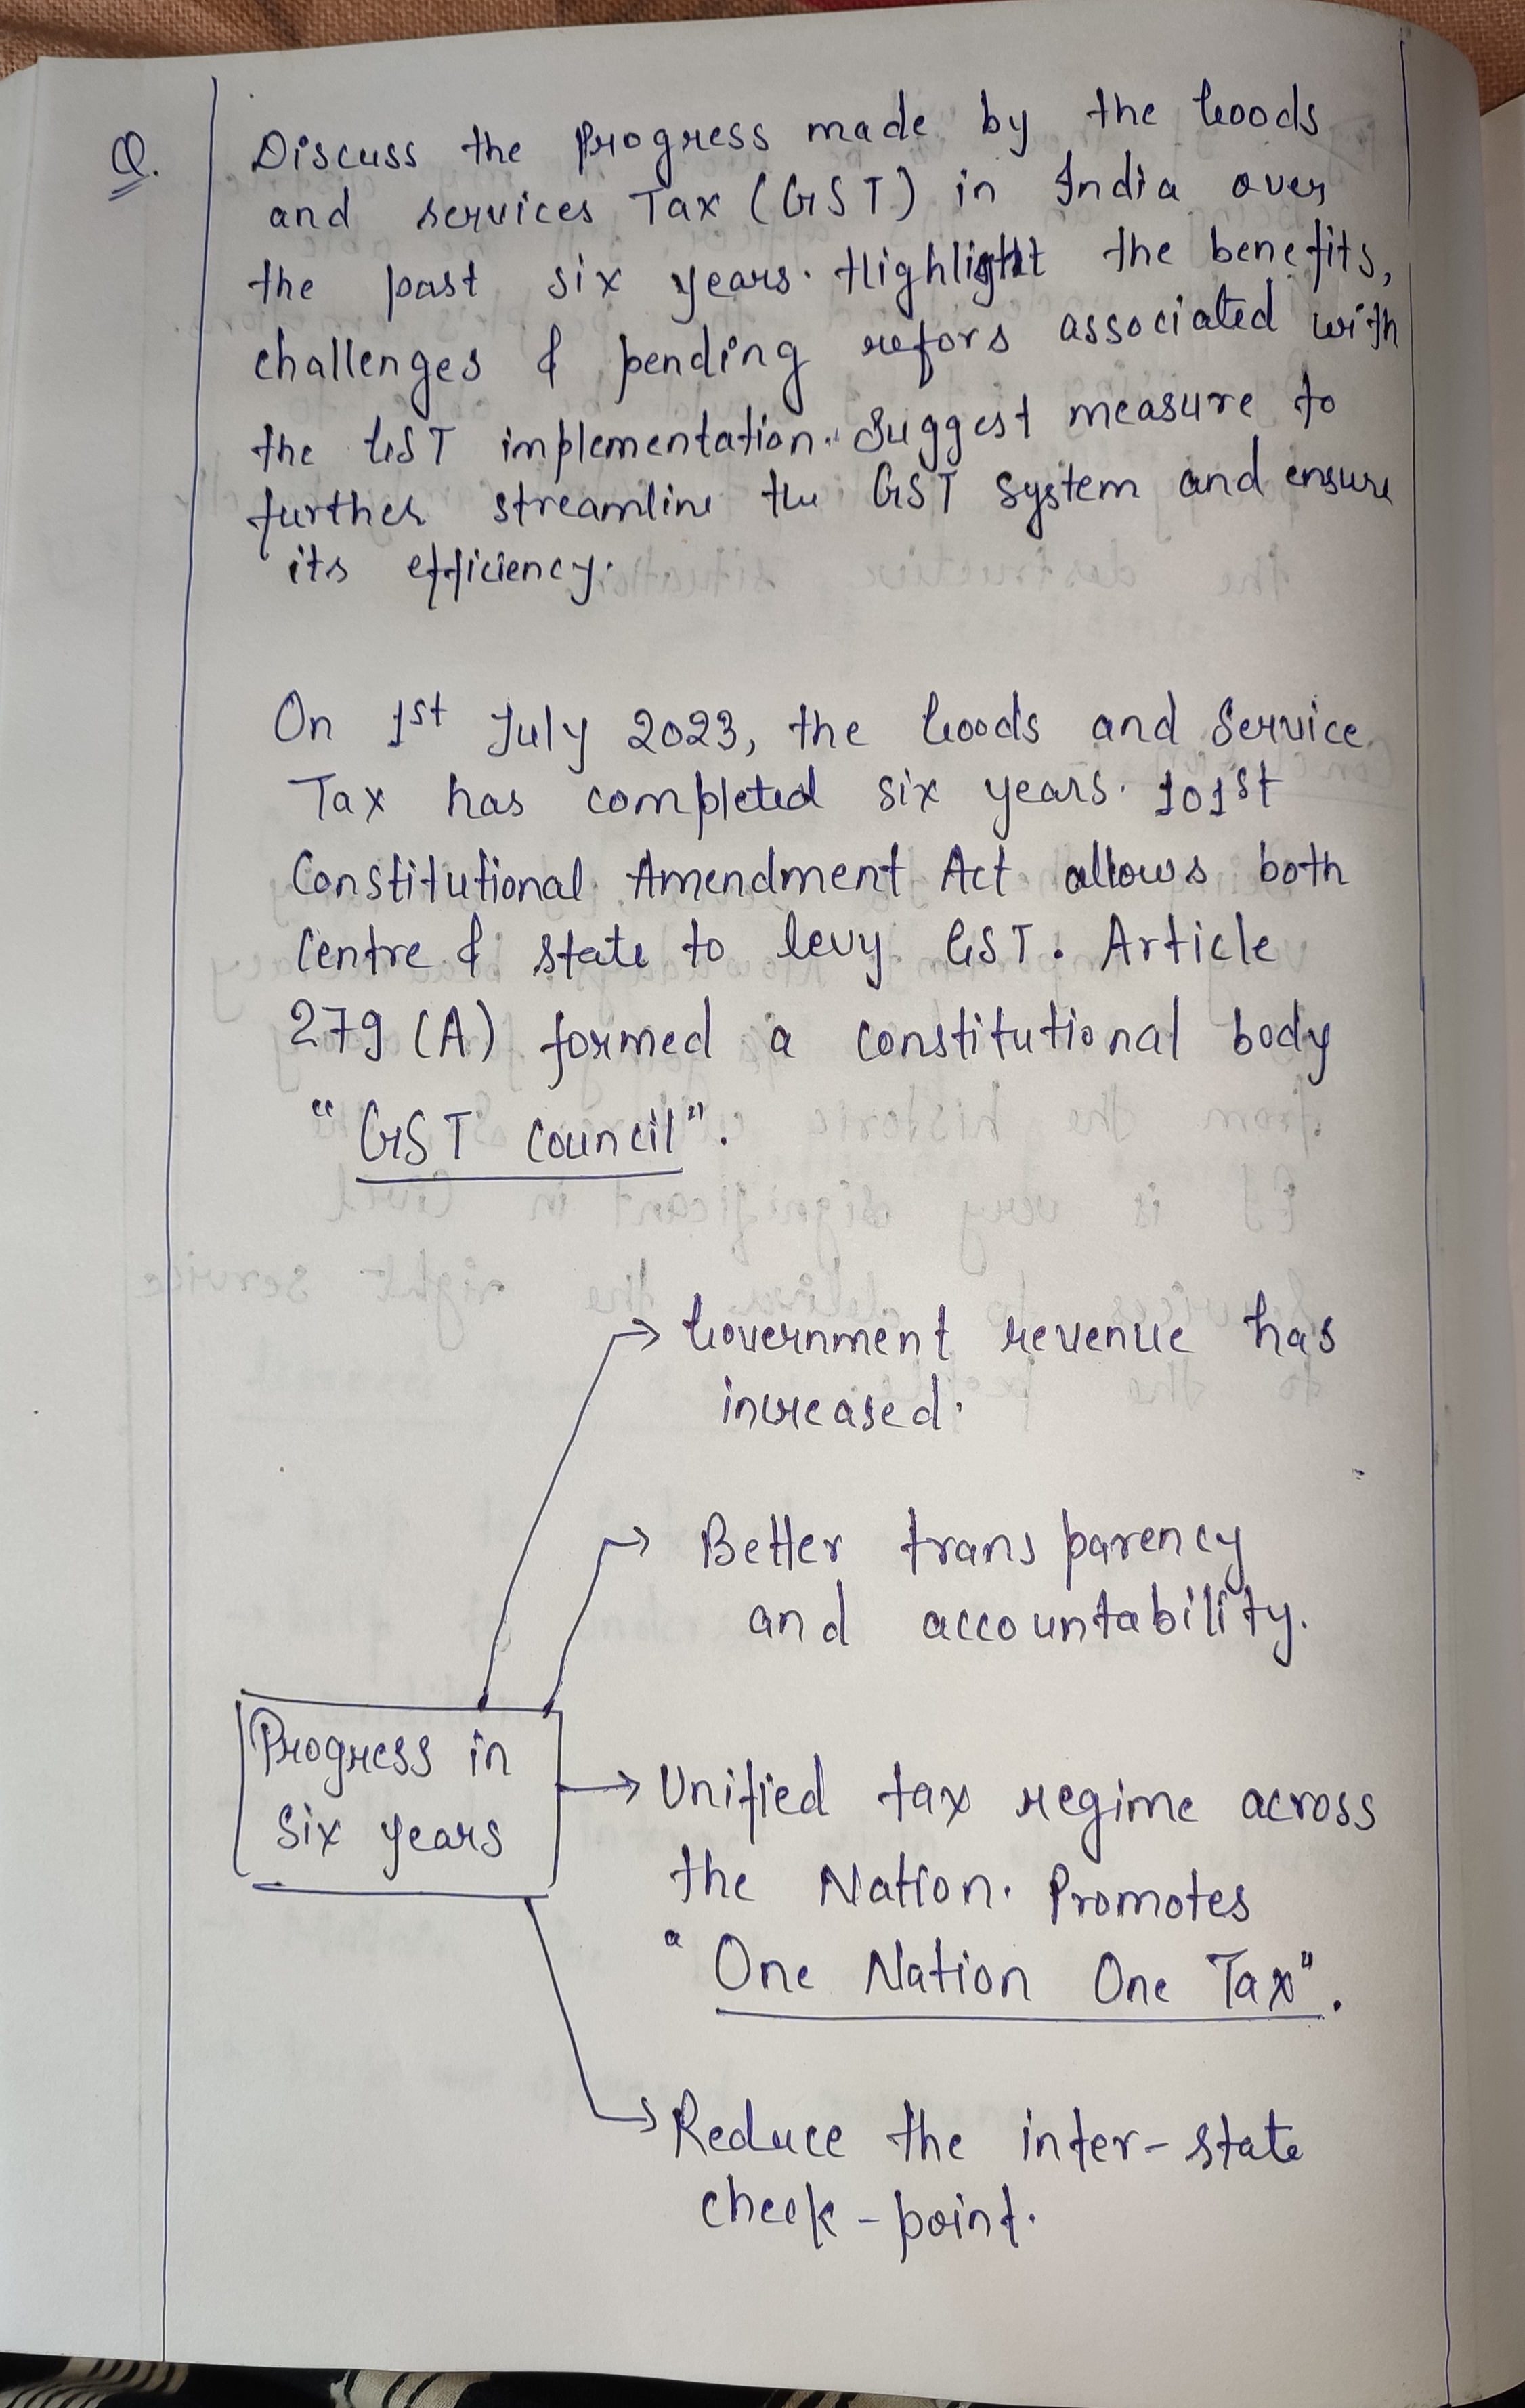 Q.
Discuss the Progress made by the Goods
and services Tax (GST) in India over
the past six years. Highlight the benefits,
challenges & pending refors associated with
the GST implementation. Suggest measure to
further streamline the GST system and ensure
its efficiency.
On 1st July 2023, the Goods and Service
Tax has completed six years. 101st
Constitutional Amendment Act allows both
Centre & state to levy GST. Article
279 (A) formed a constitutional body
"GST Council".
Government revenue has
increased.
Better transparency
and accountability.
Progress in
six years
Unified tax regime across
the Nation. Promotes
"One Nation One Tax".
Reduce the inter-state
check-point.